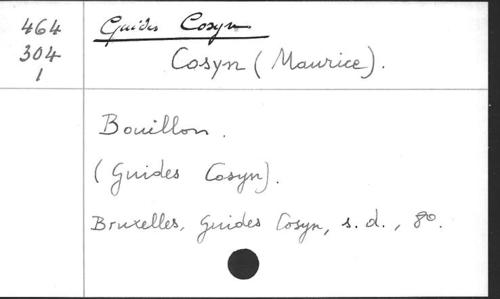 464
304
1
Guides Cosyn
Cosyn (Maurice).
Bouillon.
(Guides Cosyn).
Bruxelles, Guides Cosyn, s.d., 8º.